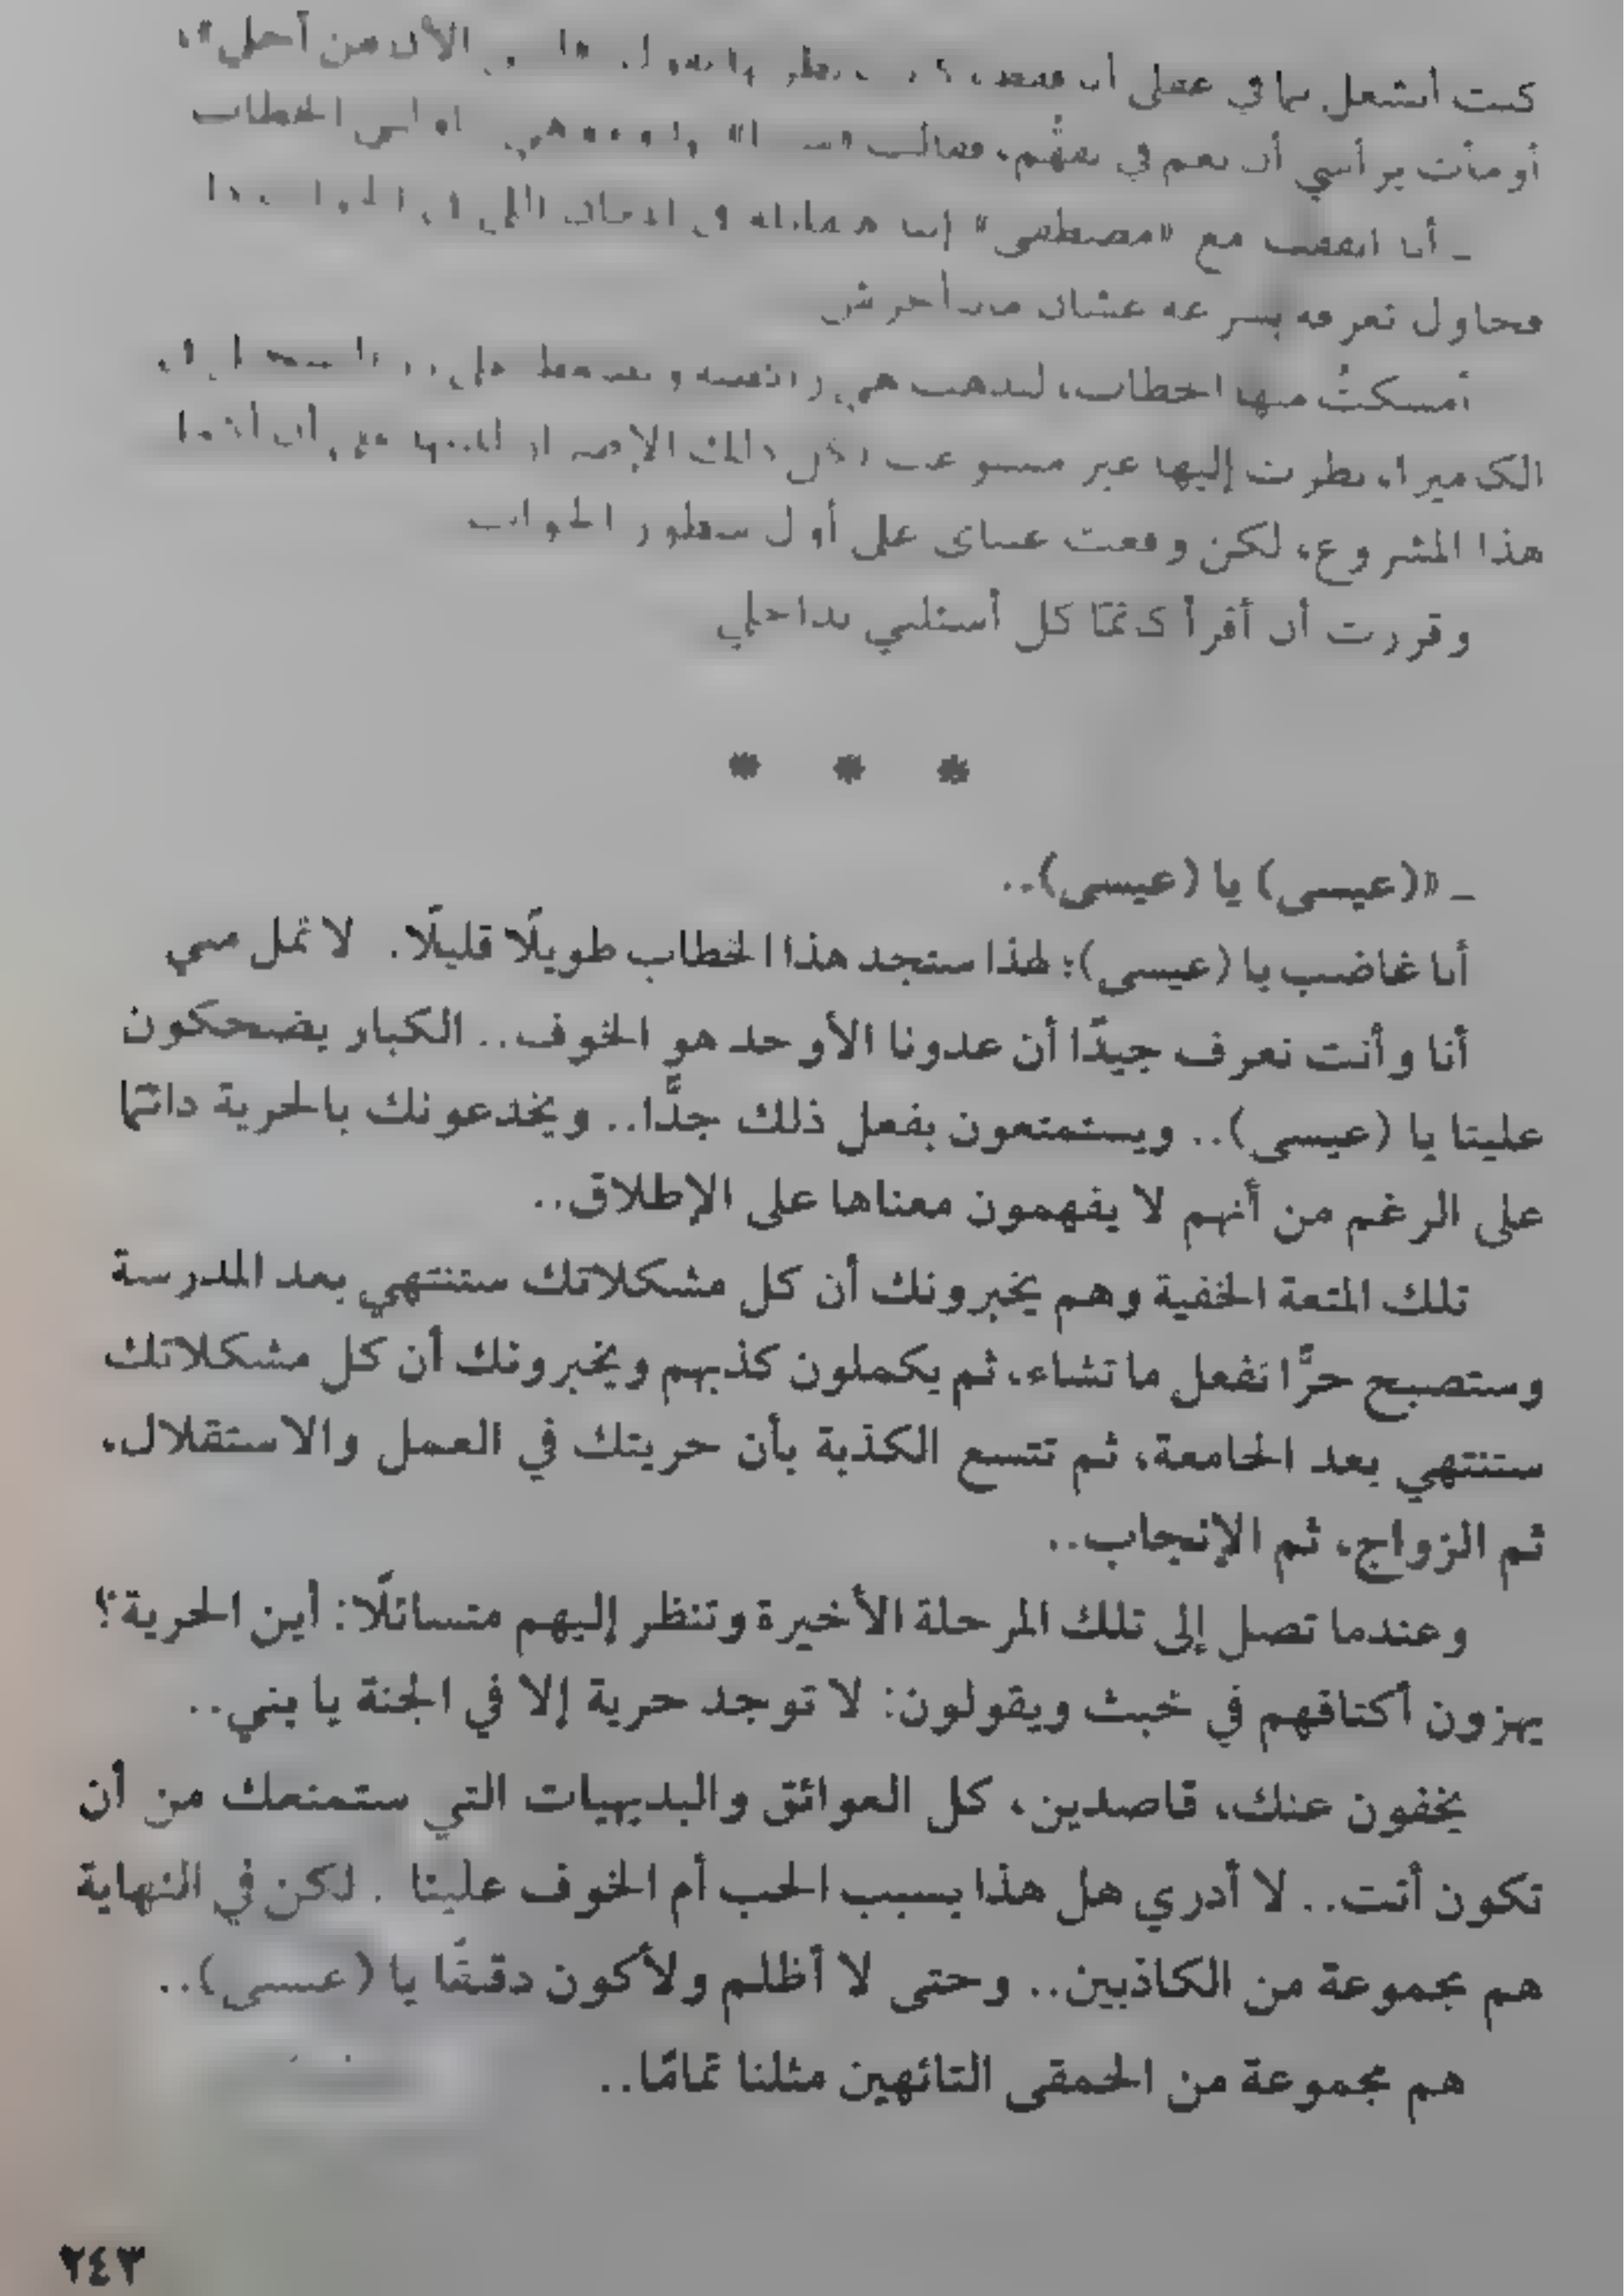 كنت أنشغل بما في عقلي أن الآن من أجلي»،
أومأت برأسي أن نعم في تفهُّم، فقالت وهي الخطاب
_ أنا اتفقت مع «مصطفى» إننا في الجواب دا
فحاول تعرفه بسرعة عشان مانتأخرش
أمسكتُ منها الخطاب، لتذهب هي
الكاميرا، نظرت إليها غير مستوعب ذلك الإصرار على أن
هذا المشروع، لكن وقعت عيناي على أول سطور الجواب
وقررت أن أقرأ كاتمًا كل أسئلتي بداخلي
* * *
_ «(عيسى) يا (عيسى)..
أنا غاضب يا (عيسى)؛ لهذا ستجد هذا الخطاب طويلًا قليلًا. لا تمل مني
أنا وأنت نعرف جيدًا أن عدونا الأوحد هو الخوف.. الكبار يضحكون
علينا يا (عيسى).. ويستمتعون بفعل ذلك جدًّا.. ويخدعونك بالحرية دائمًا
على الرغم من أنهم لا يفهمون معناها على الإطلاق..
تلك المتعة الخفية وهم يخبرونك أن كل مشكلاتك ستنتهي بعد المدرسة
وستصبح حرًّا تفعل ما تشاء، ثم يكملون كذبهم ويخبرونك أن كل مشكلاتك
ستنتهي بعد الجامعة، ثم تتسع الكذبة بأن حريتك في العمل والاستقلال،
ثم الزواج، ثم الإنجاب..
وعندما تصل إلى تلك المرحلة الأخيرة وتنظر إليهم متسائلًا: أين الحرية؟
يهزون أكتافهم في خبث ويقولون: لا توجد حرية إلا في الجنة يا بني..
يخفون عنك، قاصدين، كل العوائق والبديهيات التي ستمنعك من أن
تكون أنت.. لا أدري هل هذا بسبب الحب أم الخوف علينا . لكن في النهاية
هم مجموعة من الكاذبين.. وحتى لا أظلم ولأكون دقيقًا يا (عيسى)..
هم مجموعة من الحمقى التائهين مثلنا تمامًا..
٢٤٣